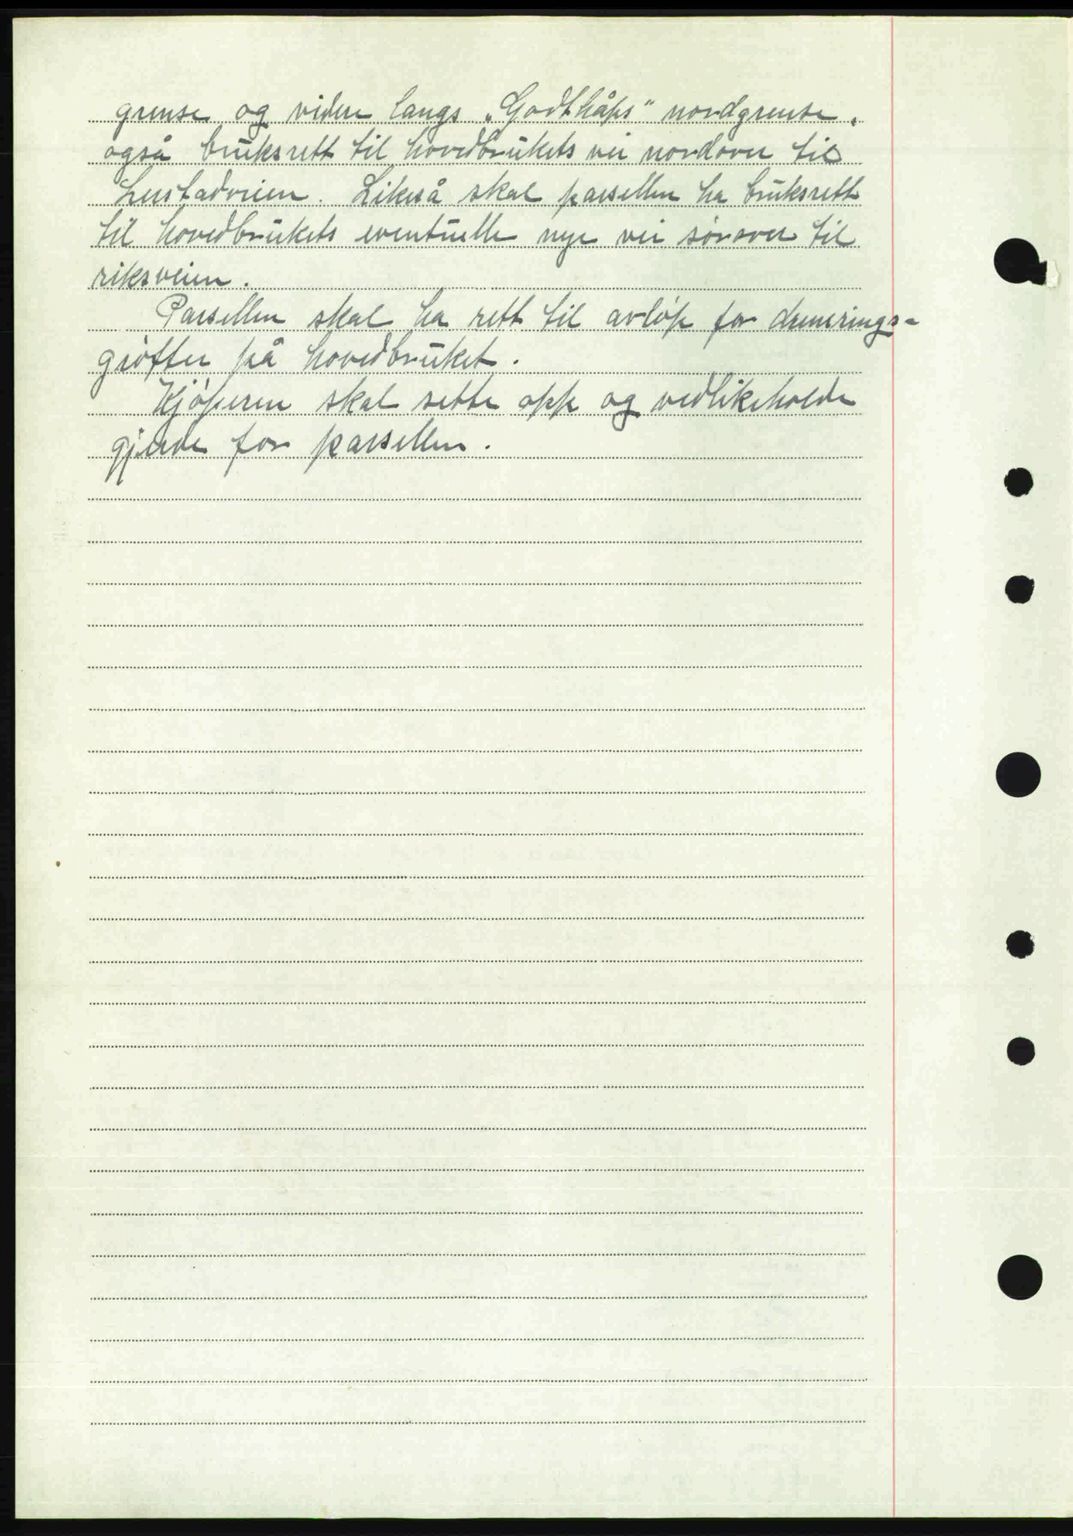 grense og videre langs „Godthåps" nordgrense,
også bruksrett til hovedbrukets vei nordover til
Lustadveien. Likeså skal parsellen ha bruksrett
til hovedbrukets eventuelle nye vei sørover til
riksveien.
Parsellen skal ha rett til avløp for drenerings-
grøfter på hovedbruket.
Kjøperen skal sette opp og vedlikeholde
gjerde for parsellen.